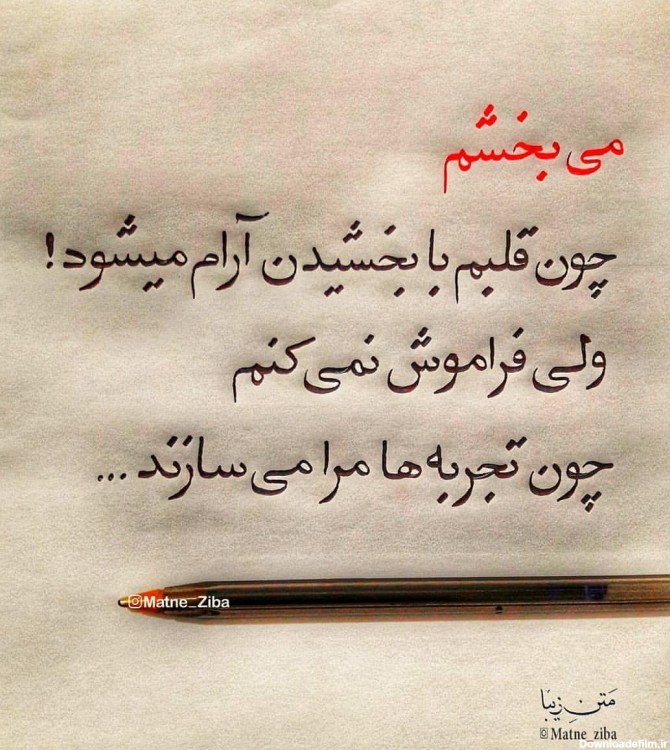 می‌بخشم
چون قلبم با بخشیدن آرام میشود!
ولی فراموش نمی‌کنم
چون تجربه‌ها مرا می‌سازند ...
Matne_Ziba
متن زیبا
©Matne_ziba
Downloadefilm.ir